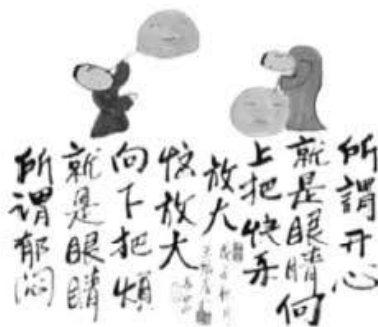 所謂开心
就是眼睛向
上把快乐
放大
所谓郁闷
就是眼睛
向下把煩
恼放大